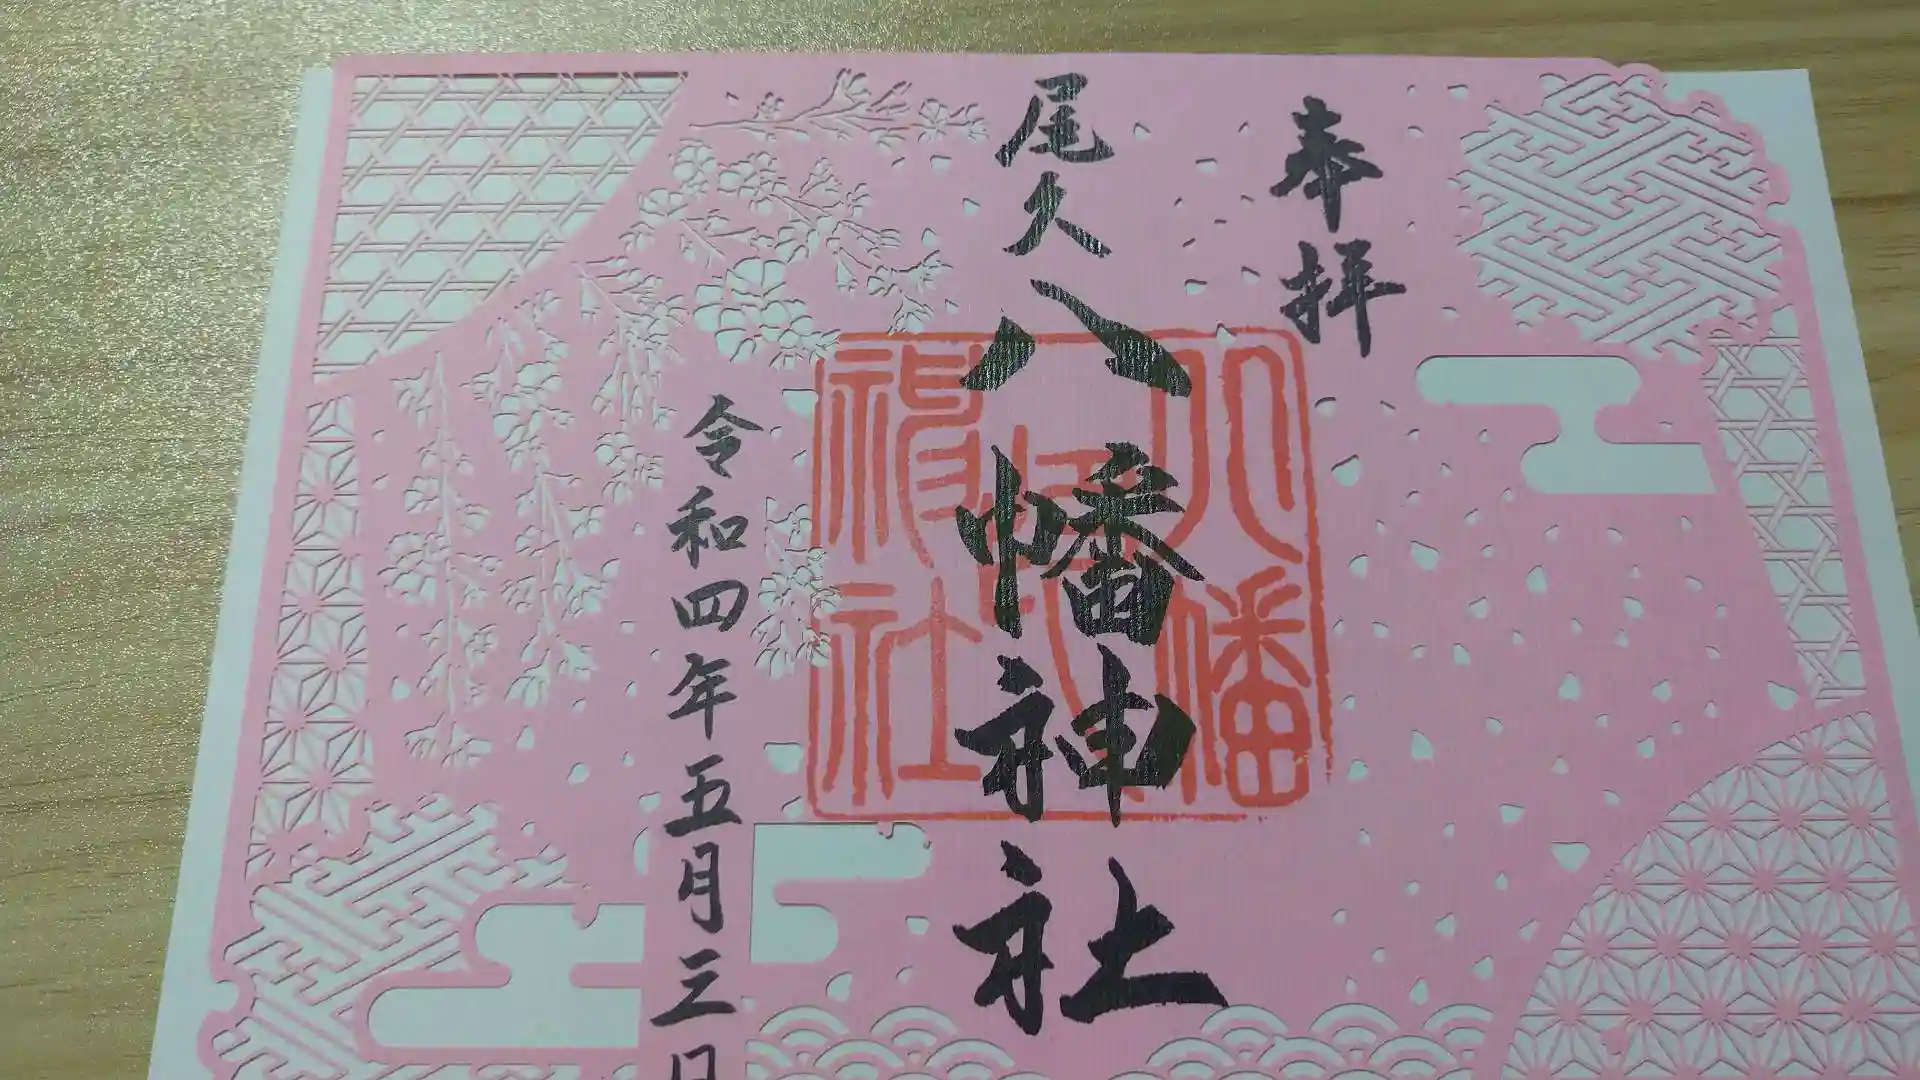 奉拝
尾久八幡神社
八幡
神社
令和四年五月三日